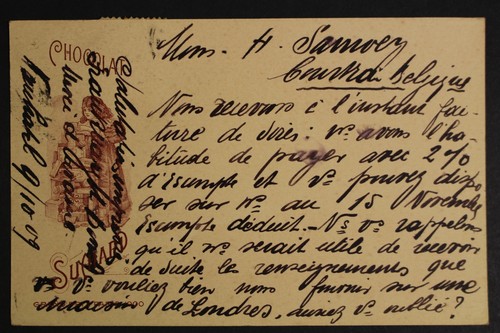 CHOCOLAT
SUCHARD
Mons. H. Samoey
Courtrai Belgique
Nous recevons à l'instant fac-
ture de soies: ns. avons l'ha-
bitude de payer avec 2%
d'Escompte et vs. pouvez dispo
ser sur ns. au 15 Novembre
Escompte déduit. Ns vs. rappelons
qu'il ns. serait utile de recevoir
de suite les renseignements que
vs. vouliez bien nous fournir sur une
maison de Londres, auriez vs. oublié?
Salutations
9/10 09